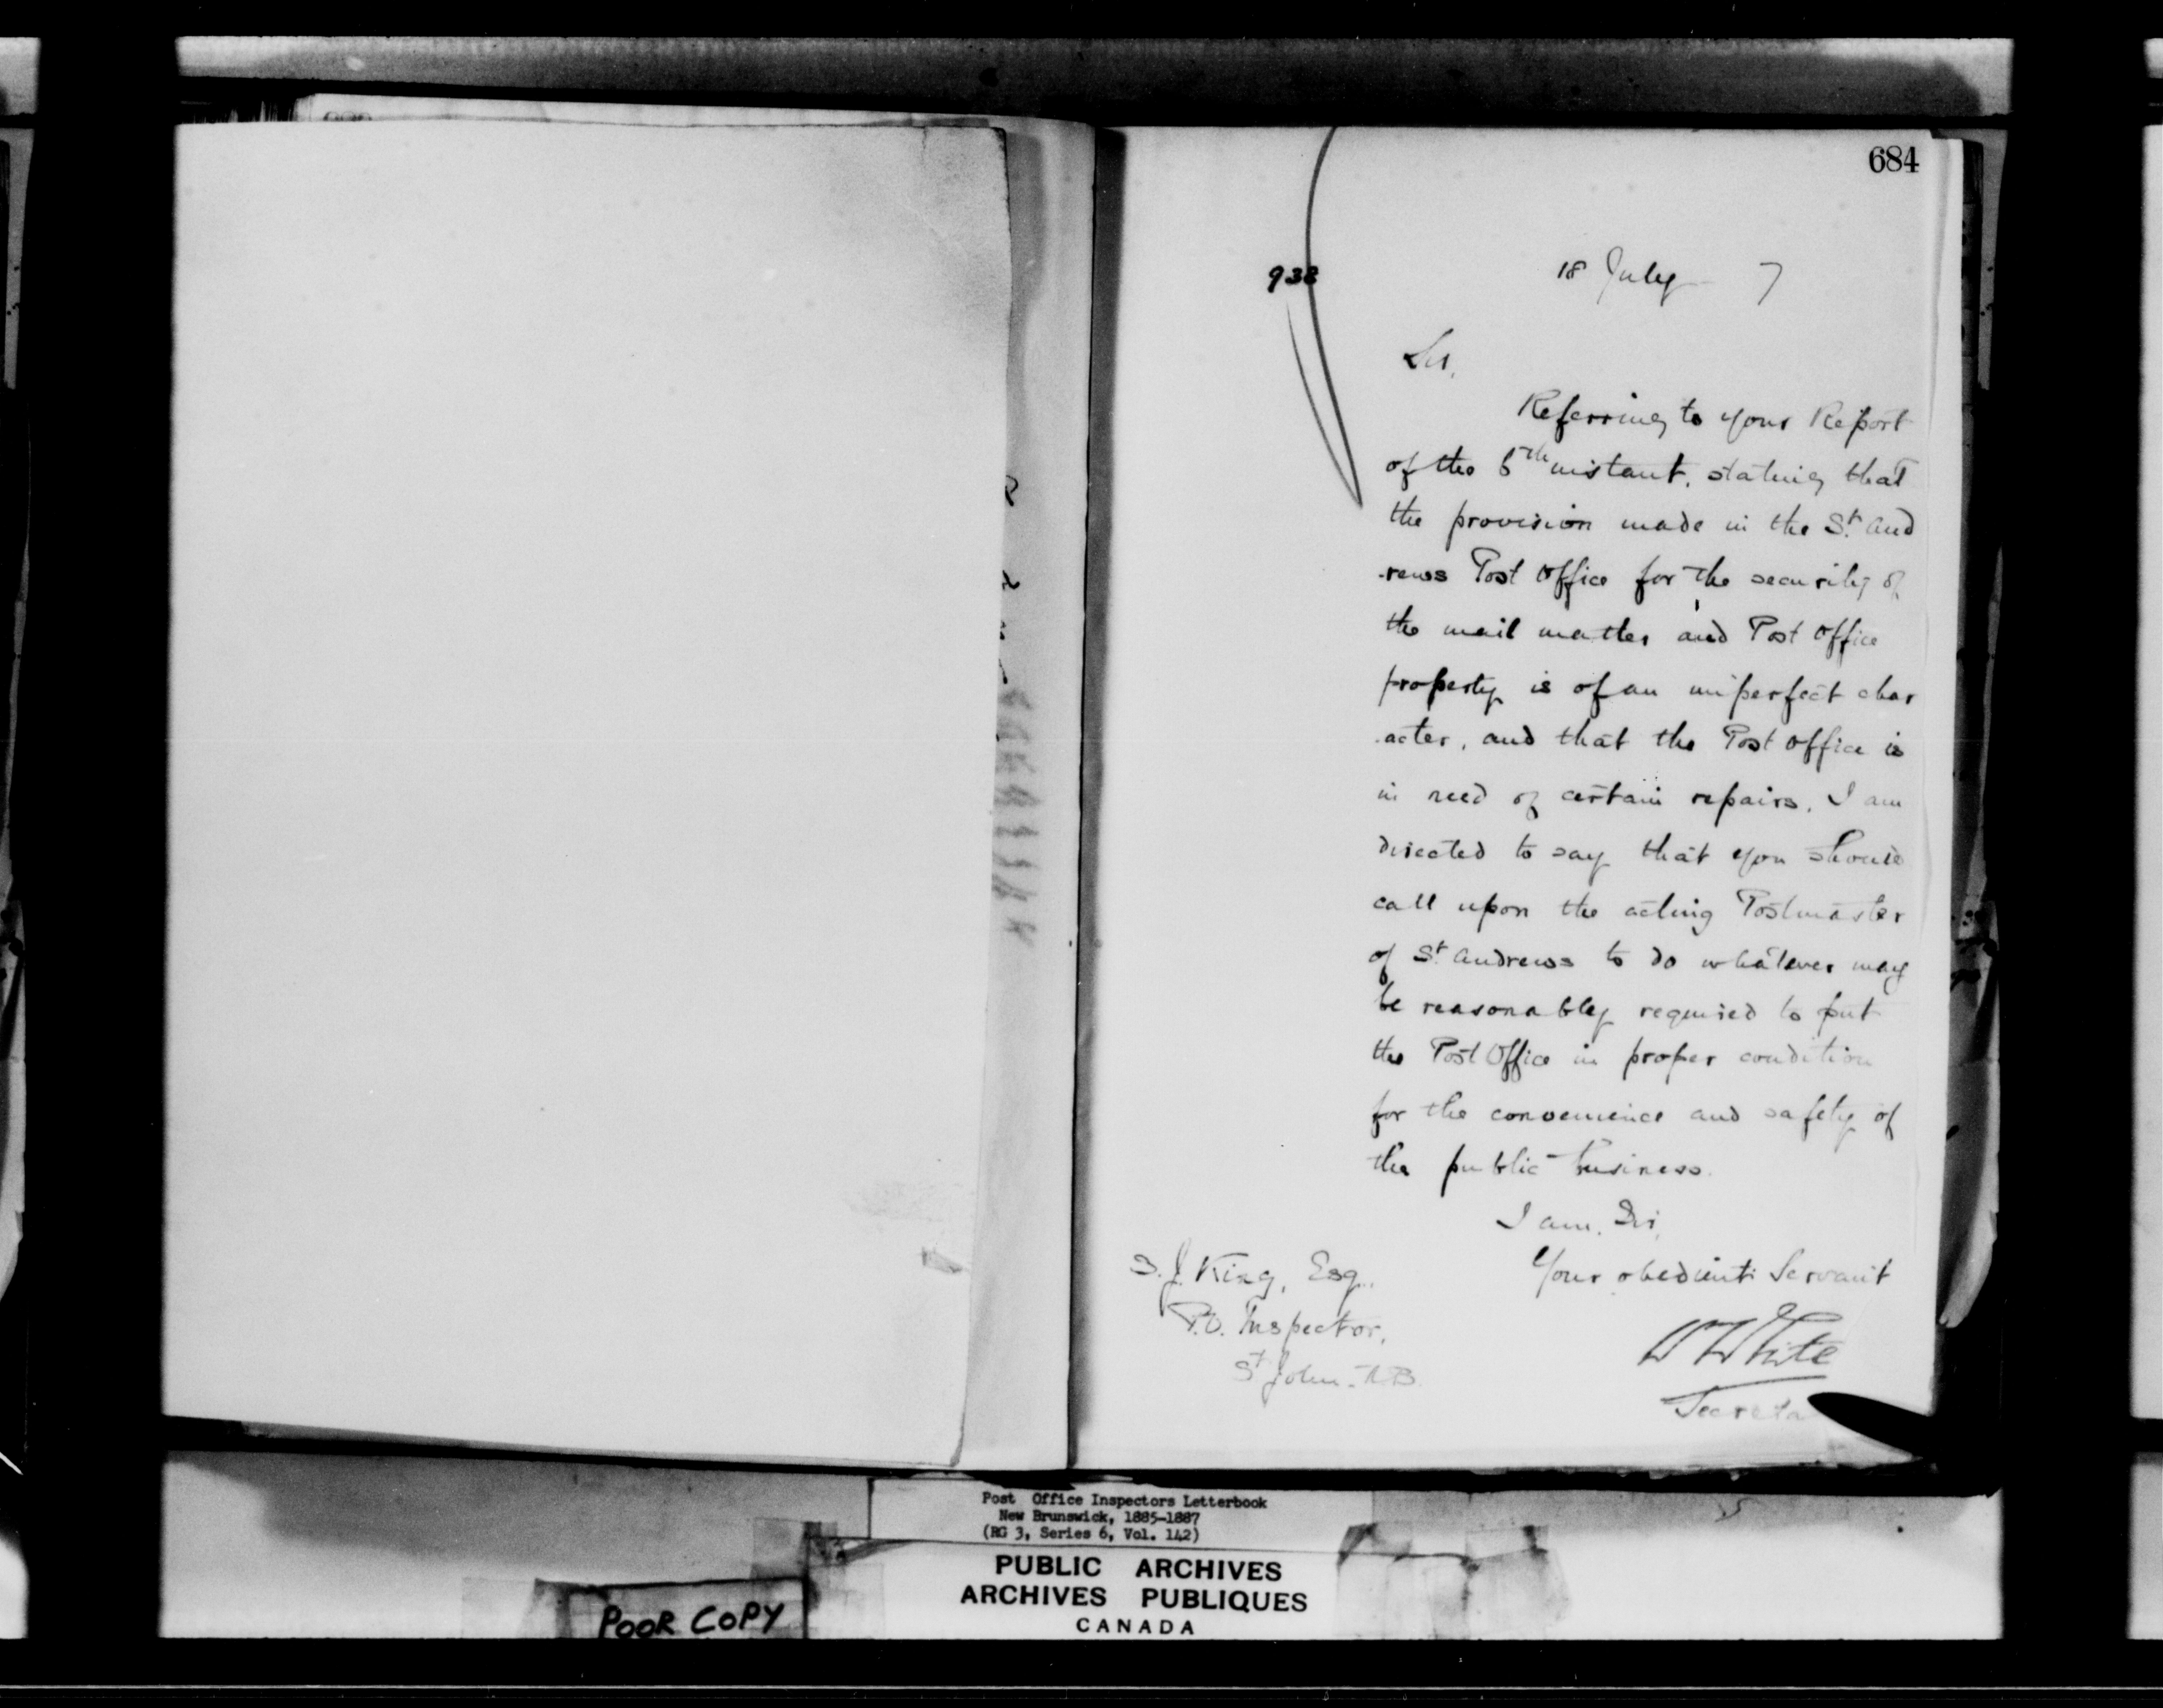 684
938
18 July 7
Sir,
Referring to your Report
of the 5th instant, stating that
the provision made in the St. And
-rews Post Office for the security of
the mail matter and Post Office
property is of an imperfect char
-acter, and that the Post Office is
in need of certain repairs, I am
directed to say that you should
call upon the acting Postmaster
of St. Andrews to do whatever may
be reasonably required to put
the Post Office in proper condition
for the convenience and safety of
the public business.
I am, Sir,
Your obedient Servant
W White
Secreta
S. J. King, Esq.,
P.O. Inspector,
St John. N.B.
Post Office Inspectors Letterbook
New Brunswick, 1885-1887
(RG 3, Series 6, Vol. 142)
PUBLIC ARCHIVES
ARCHIVES PUBLIQUES
CANADA
POOR COPY